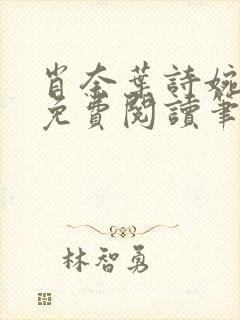 肖奈葉詩婉
免費閱讀筆
林智勇